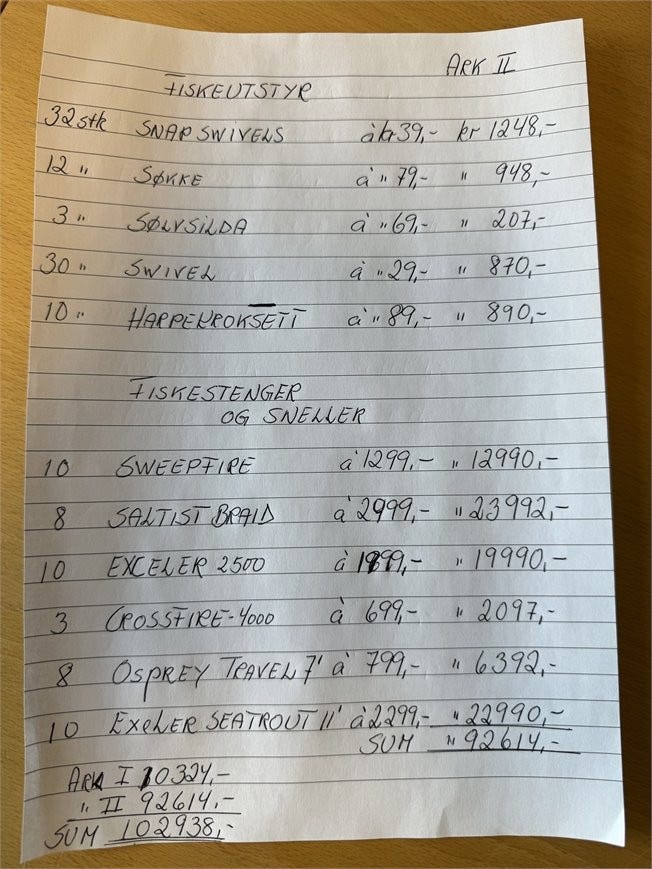 ARK II
FISKEUTSTYR
32 stk SNAP SWIVELS à kr 39,- kr 1248,-
12 " SØKKE à " 79,- " 948,-
3 " SØLVSILDA à " 69,- " 207,-
30 " SWIVEL à " 29,- " 870,-
10 " HARPEKROKSETT à " 89,- " 890,-
FISKESTENGER
OG SNELLER
10 SWEEPFIRE à 1299,- " 12990,-
8 SALTIST BRAID à 2999,- " 23992,-
10 EXCELER 2500 à 1999,- " 19990,-
3 CROSSFIRE-4000 à 699,- " 2097,-
8 OSPREY TRAVEL 7' à 799,- " 6392,-
10 EXELER SEATROUT 11' à 2299,- " 22990,-
SUM " 92614,-
ARK I 10324,-
" II 92614,-
SUM 102938,-